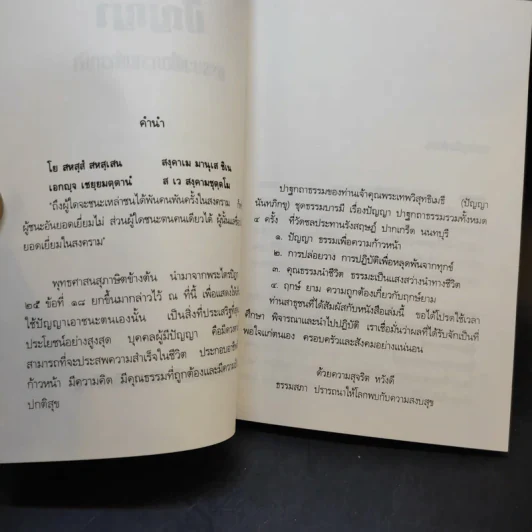 คำนำ
โย สหสฺสํ สหสฺเสน สงฺคาเม มานุเส ชิเน
เอกญฺจ เชยฺยมตฺตานํ ส เว สงฺคามชุตฺตโม
"ถึงผู้ใดจะชนะเหล่าชนได้พันคนพันครั้งในสงคราม
ผู้ชนะอันยอดเยี่ยมไม่ ส่วนผู้ใดชนะตนคนเดียวได้ ผู้นั้น
ยอดเยี่ยมในสงคราม"
พุทธศาสนสุภาษิตข้างต้น นำมาจากพระไตรปิฎก
๒๕ ข้อที่ ๑๘ ยกขึ้นมากล่าวไว้ ณ ที่นี้ เพื่อแสดง
ใช้ปัญญาเอาชนะตนเองนั้น เป็นสิ่งที่ประเสริฐ
ประโยชน์อย่างสูงสุด บุคคลผู้มีปัญญา คือมี
สามารถที่จะประสพความสำเร็จในชีวิต ประกอบ
ก้าวหน้า มีความคิด มีคุณธรรมที่ถูกต้องและมี
ปกติสุข
ปาฐกถาธรรมของท่านเจ้าคุณพระเทพวิสุทธิเมธี (ปัญญา
นันทภิกขุ) ชุดธรรมบารมี เรื่องปัญญา ปาฐกถาธรรมรวมทั้งหมด
๔ ครั้ง ที่วัดชลประทานรังสฤษฎ์ ปากเกร็ด นนทบุรี
๑. ปัญญา ธรรมเพื่อความก้าวหน้า
๒. การปล่อยวาง การปฏิบัติเพื่อหลุดพ้นจากทุกข์
๓. คุณธรรมนำชีวิต ธรรมะเป็นแสงสว่างนำทางชีวิต
๔. ฤกษ์ ยาม ความถูกต้องเกี่ยวกับฤกษ์ยาม
ท่านสาธุชนที่ได้สัมผัสกับหนังสือเล่มนี้ ขอได้โปรดใช้เวลา
ศึกษา พิจารณาและนำไปปฏิบัติ เราเชื่อมั่นว่าผลที่ได้รับจักเป็นที่
พอใจแก่ตนเอง ครอบครัวและสังคมอย่างแน่นอน
ด้วยความสุจริต หวังดี
ธรรมสภา ปรารถนาให้โลกพบกับความสงบสุข